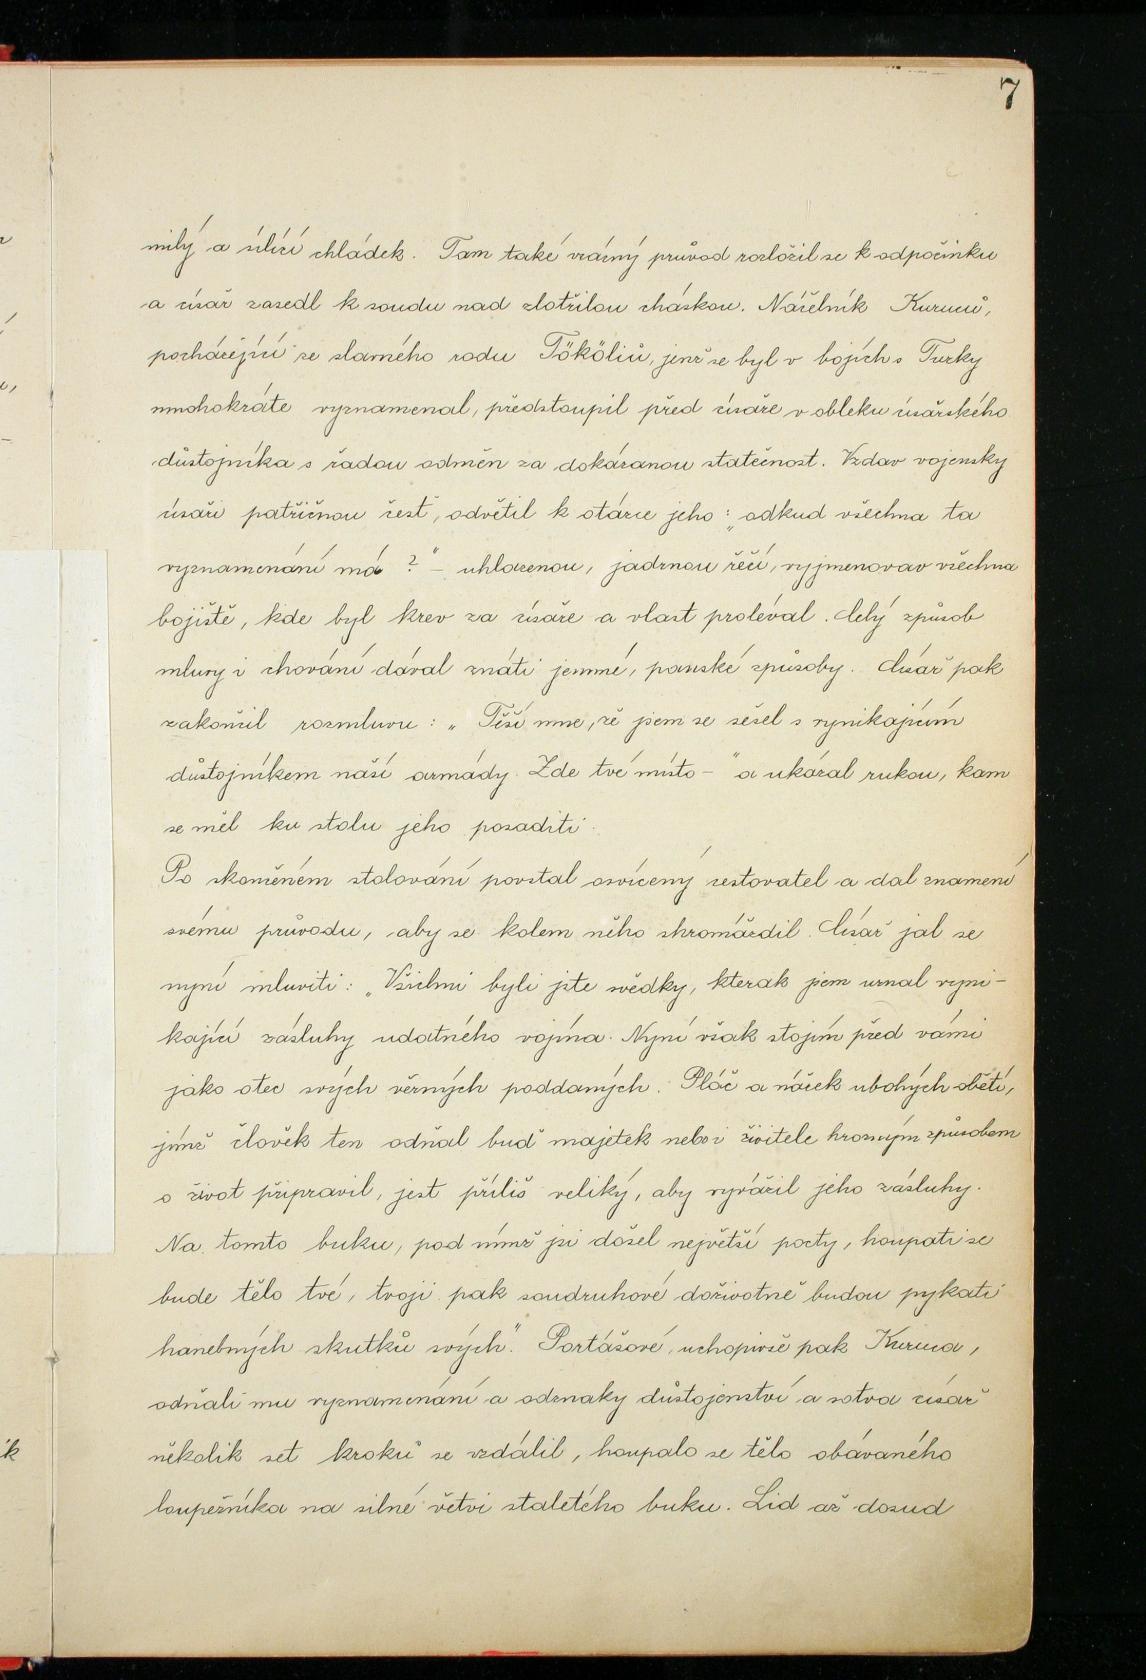 7
milý a sílící chládek. Tam také vzácný průvod rozložil se k odpočinku
a císař zasedl k soudu nad zlotřilou cháskou. Náčelník Kuruců,
pocházející se slavného rodu Tököliů, jenž se byl v bojích s Turky
mnohokráte vyznamenal, předstoupil před císaře v obleku císařského
důstojníka s řadou odměn za dokázanou statečnost. Vzdav vojensky
císaři patřičnou čest, odvětil k otázce jeho: „odkud všechna ta
vyznamenání má?" – uhlazenou, jadrnou řečí, vyjmenovav všechna
bojiště, kde byl krev za císaře a vlast proléval. Celý způsob
mluvy i chování dával znáti jemné, panské způsoby. Císař pak
zakončil rozmluvu: „Těší mne, že jsem se sešel s vynikajícím
důstojníkem naší armády. Zde tvé místo –" a ukázal rukou, kam
se měl ku stolu jeho posaditi.
Po skončeném stolování povstal osvícený cestovatel a dal znamení
svému průvodu, aby se kolem něho shromáždil. Císař jal se
nyní mluviti: „Všichni byli jste svědky, kterak jsem uznal vyni-
kající zásluhy udatného vojína. Nyní však stojím před vámi
jako otec svých věrných poddaných. Pláč a nářek ubohých obětí,
jimž člověk ten odňal buď majetek nebo i živitele hrozným způsobem
o život připravil, jest příliš veliký, aby vyvážil jeho zásluhy.
Na tomto buku, pod nímž jsi došel největší pocty, houpati se
bude tělo tvé, tvoji pak soudruhové doživotně budou pykati
hanebných skutků svých." Portášové, uchopivše pak Kuruca,
odňali mu vyznamenání a odznaky důstojenství a sotva císař
několik set kroků se vzdálil, houpalo se tělo obávaného
loupežníka na silné větvi staletého buku. Lid až dosud